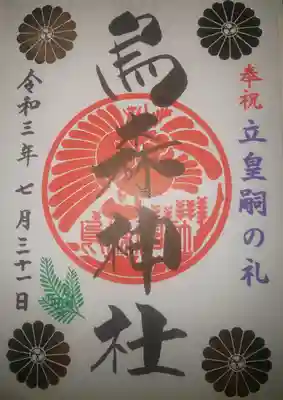 奉祝 立皇嗣の礼
烏森神社
令和三年 七月三十一日